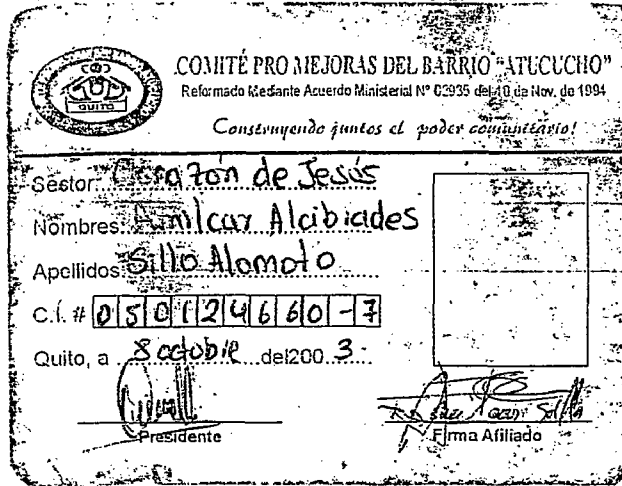 COMITÉ PRO MEJORAS DEL BARRIO "ATUCUCHO"
Reformado Mediante Acuerdo Ministerial Nº 02935 del 10 de Nov. de 1994
QUITO
Construyendo juntos el poder comunitario!
Sector: Corazón de Jesús
Nombres: Amilcar Alcibiades
Apellidos: Sillo Alomoto
C.I. # 050124660-7
Quito, a 8 octobre del 200 3.
Presidente
Firma Afiliado